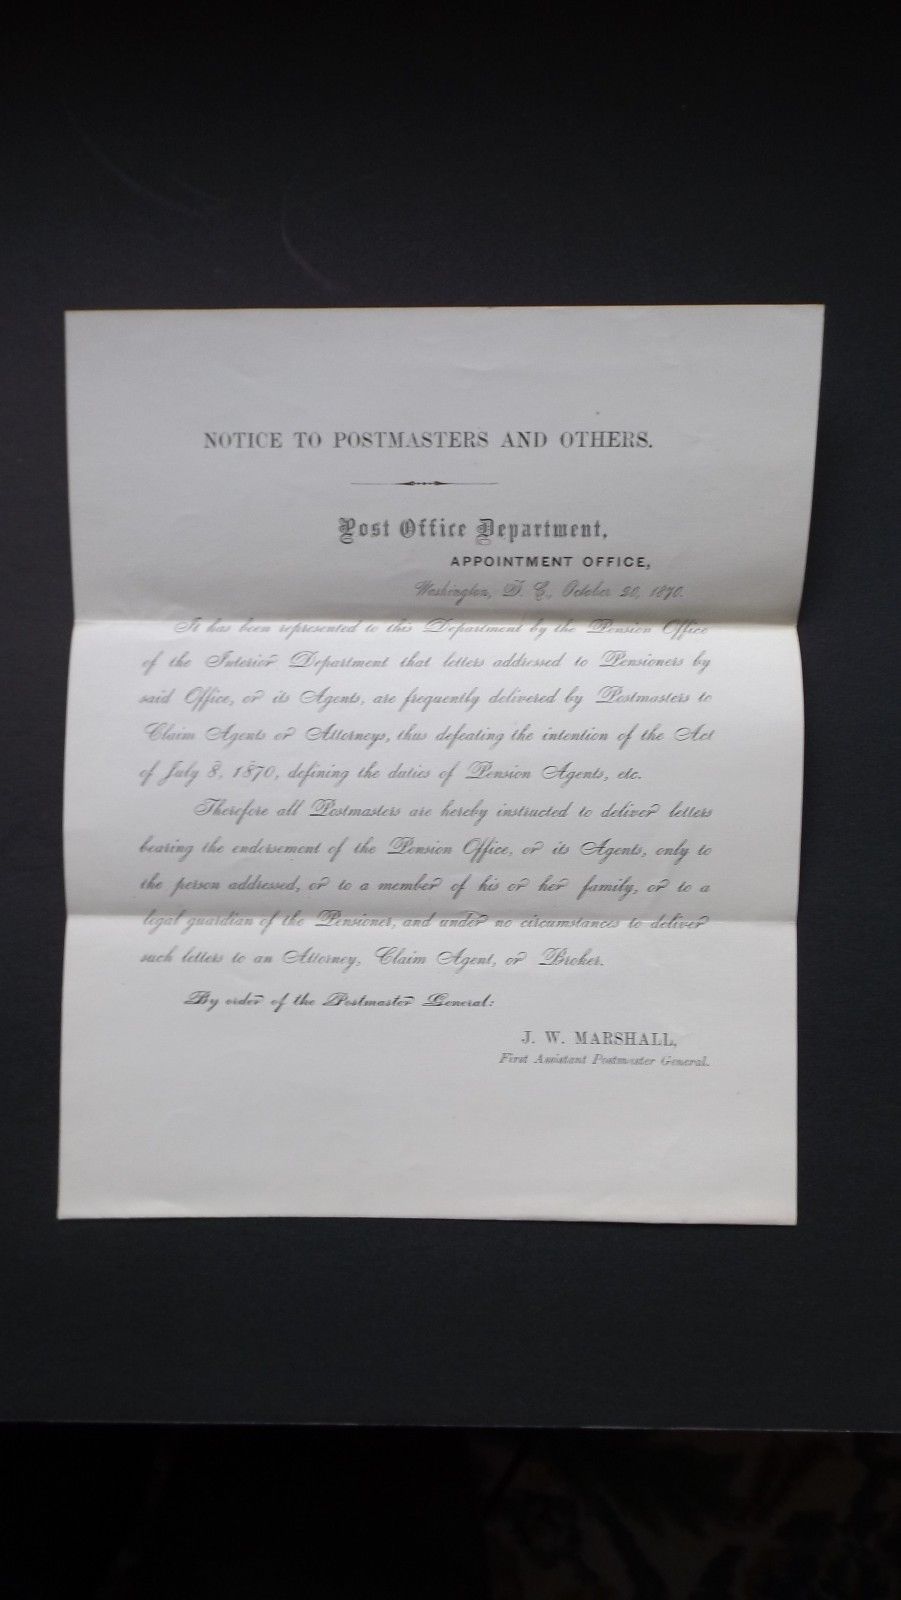 NOTICE TO POSTMASTERS AND OTHERS.
Post Office Department,
APPOINTMENT OFFICE,
Washington, D. C., October 20, 1870.
It has been represented to this Department by the Pension Office
of the Interior Department that letters addressed to Pensioners by
said Office, or its Agents, are frequently delivered by Postmasters to
Claim Agents or Attorneys, thus defeating the intention of the Act
of July 8, 1870, defining the duties of Pension Agents, etc.
Therefore all Postmasters are hereby instructed to deliver letters
bearing the endorsement of the Pension Office, or its Agents, only to
the person addressed, or to a member of his or her family, or to a
legal guardian of the Pensioner, and under no circumstances to deliver
such letters to an Attorney, Claim Agent, or Broker.
By order of the Postmaster General:
J. W. MARSHALL,
First Assistant Postmaster General.